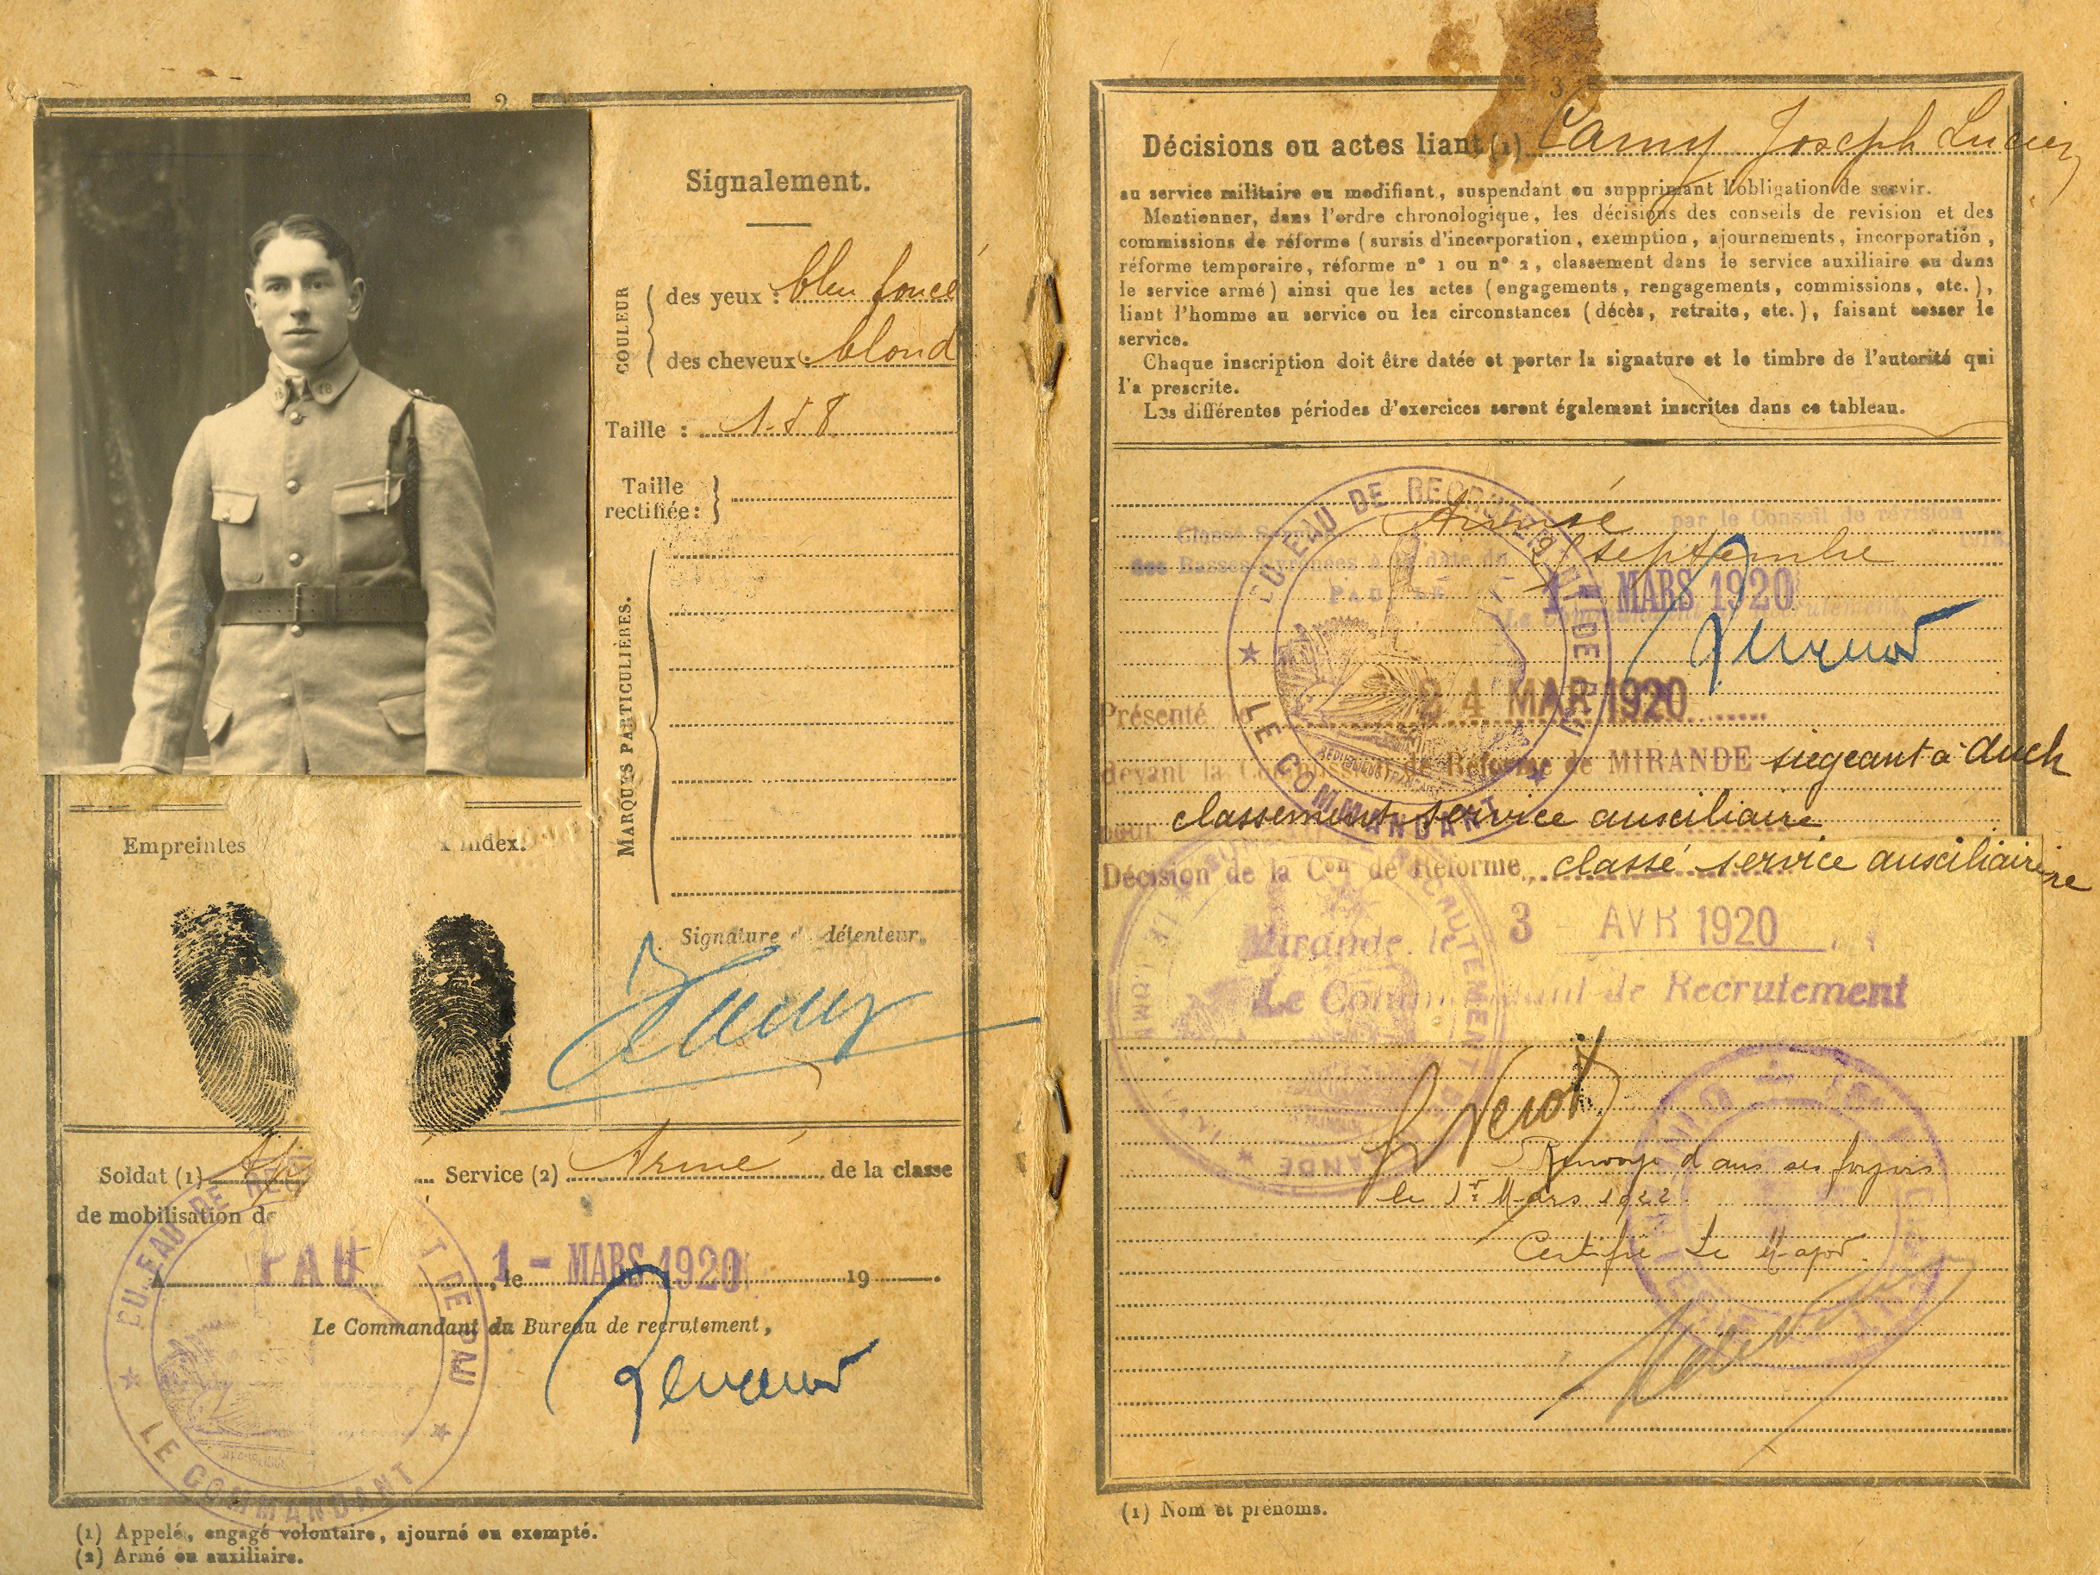 2
Signalement.
COULEUR
des yeux : bleu foncé
des cheveux : blond
Taille : 1.58
Taille
rectifiée :
MARQUES PARTICULIÈRES.
Empreintes x index.
Signature d détenteur.
Camy
Soldat (1) Service (2) Armé de la classe
de mobilisation de
A PAU, le 1 - MARS 1920 19 .
Le Commandant du Bureau de recrutement,
BUREAU DE RECRUTEMENT DE PAU
★ LE COMMANDANT ★
(1) Appelé, engagé volontaire, ajourné ou exempté.
(2) Armé ou auxiliaire.
3
Décisions ou actes liant (1) Camy Joseph Lucien
au service militaire ou modifiant, suspendant ou supprimant l'obligation de servir.
Mentionner, dans l'ordre chronologique, les décisions des conseils de revision et des
commissions de réforme (sursis d'incorporation, exemption, ajournements, incorporation,
réforme temporaire, réforme n° 1 ou n° 2, classement dans le service auxiliaire ou dans
le service armé) ainsi que les actes (engagements, rengagements, commissions, etc.),
liant l'homme au service ou les circonstances (décès, retraite, etc.), faisant cesser le
service.
Chaque inscription doit être datée et porter la signature et le timbre de l'autorité qui
l'a prescrite.
Les différentes périodes d'exercices seront également inscrites dans ce tableau.
BUREAU DE RECRUTEMENT DE PAU
★ LE COMMANDANT ★
Classé S par le Conseil de révision
des Basses-Pyrénées à la date du septembre
PAU LE 1 - MARS 1920
Présenté le 24 MAR 1920
devant la Commission de Réforme de MIRANDE siégeant à Auch
pour classement service auxiliaire
Décision de la Con de Réforme classé service auxiliaire
Mirande, le 3 - AVR 1920
Le Commandant de Recrutement
Renvoyé dans ses foyers
le 1er Mars 1922
Certifié Le Major
(1) Nom et prénoms.